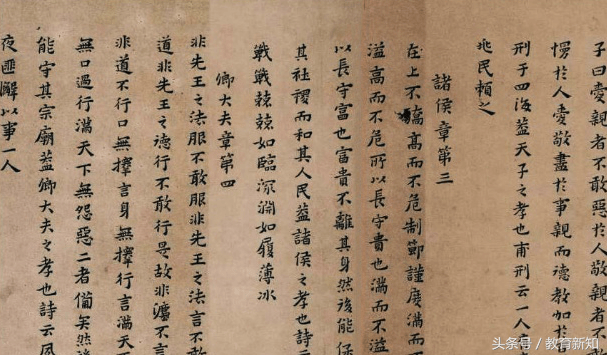 子曰愛親者不敢惡於人敬親者不
慢於人愛敬盡於事親而德教加於
刑于四海蓋天子之孝也甫刑云一人
兆民賴之
諸侯章第三
在上不驕高而不危制節謹度滿而
溢高而不危所以長守貴也滿而不溢
以長守富也富貴不離其身然後能保
其社稷而和其人民蓋諸侯之孝也詩
戰戰兢兢如臨深淵如履薄冰
卿大夫章第四
非先王之法服不敢服非先王之法言不敢
道非先王之德行不敢行是故非灋不言
非道不行口無擇言身無擇行言滿天
無口過行滿天下無怨惡二者備矣然
能守其宗廟蓋卿大夫之孝也詩云夙
夜匪懈以事一人
头条号／教育新知